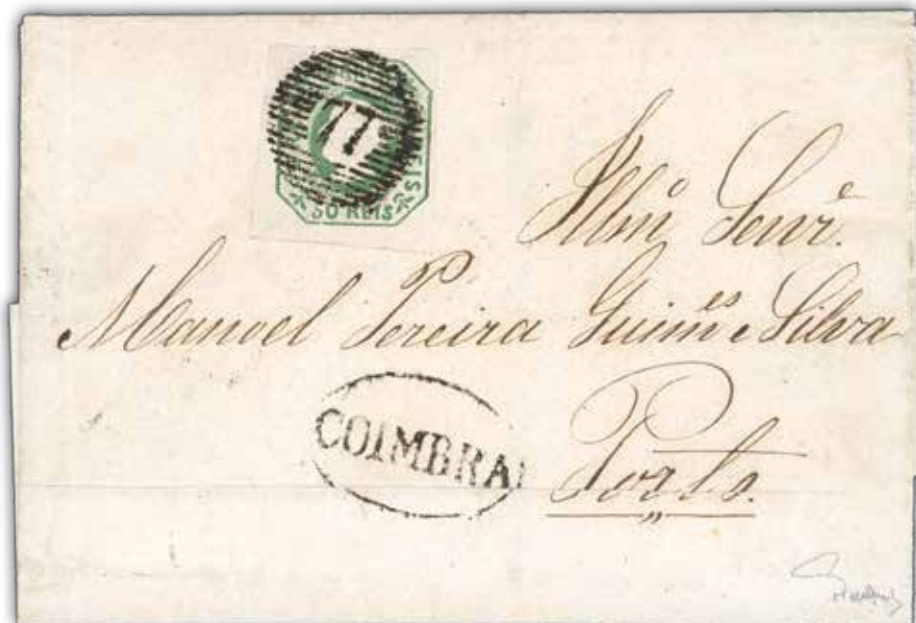 77
50 REIS
Illmº Senrᵉ.
Manoel Pereira Guimᵉˢ e Silva
COIMBRA
Porto.